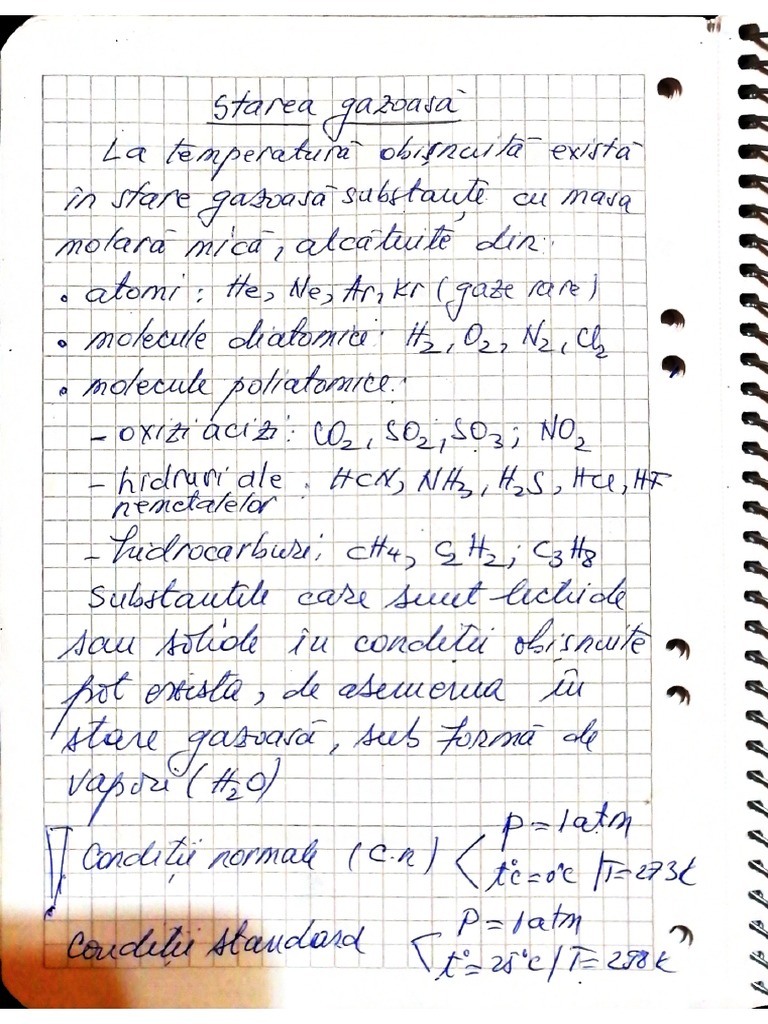 Starea gazoasă
La temperatură obișnuită există
în stare gazoasă substanțe cu masa
molară mică, alcătuite din:
• atomi: He, Ne, Ar, Kr (gaze rare)
• molecule diatomice: H₂, O₂, N₂, Cl₂
• molecule poliatomice:
- oxizi acizi: CO₂, SO₂, SO₃; NO₂
- hidruri ale : HCN, NH₃, H₂S, HCl, HF
nemetalelor
- hidrocarburi; CH₄, C₂H₂; C₃H₈
Substantele care sunt lichide
sau solide în condiții obișnuite
pot exista, de asemenea în
stare gazoasă, sub formă de
vapori (H₂O)
Condiții normale (c.n) < P = 1 atm
t°C = 0°C / T = 273K
Condiții standard < P = 1 atm
t° = 25°C / T = 298K